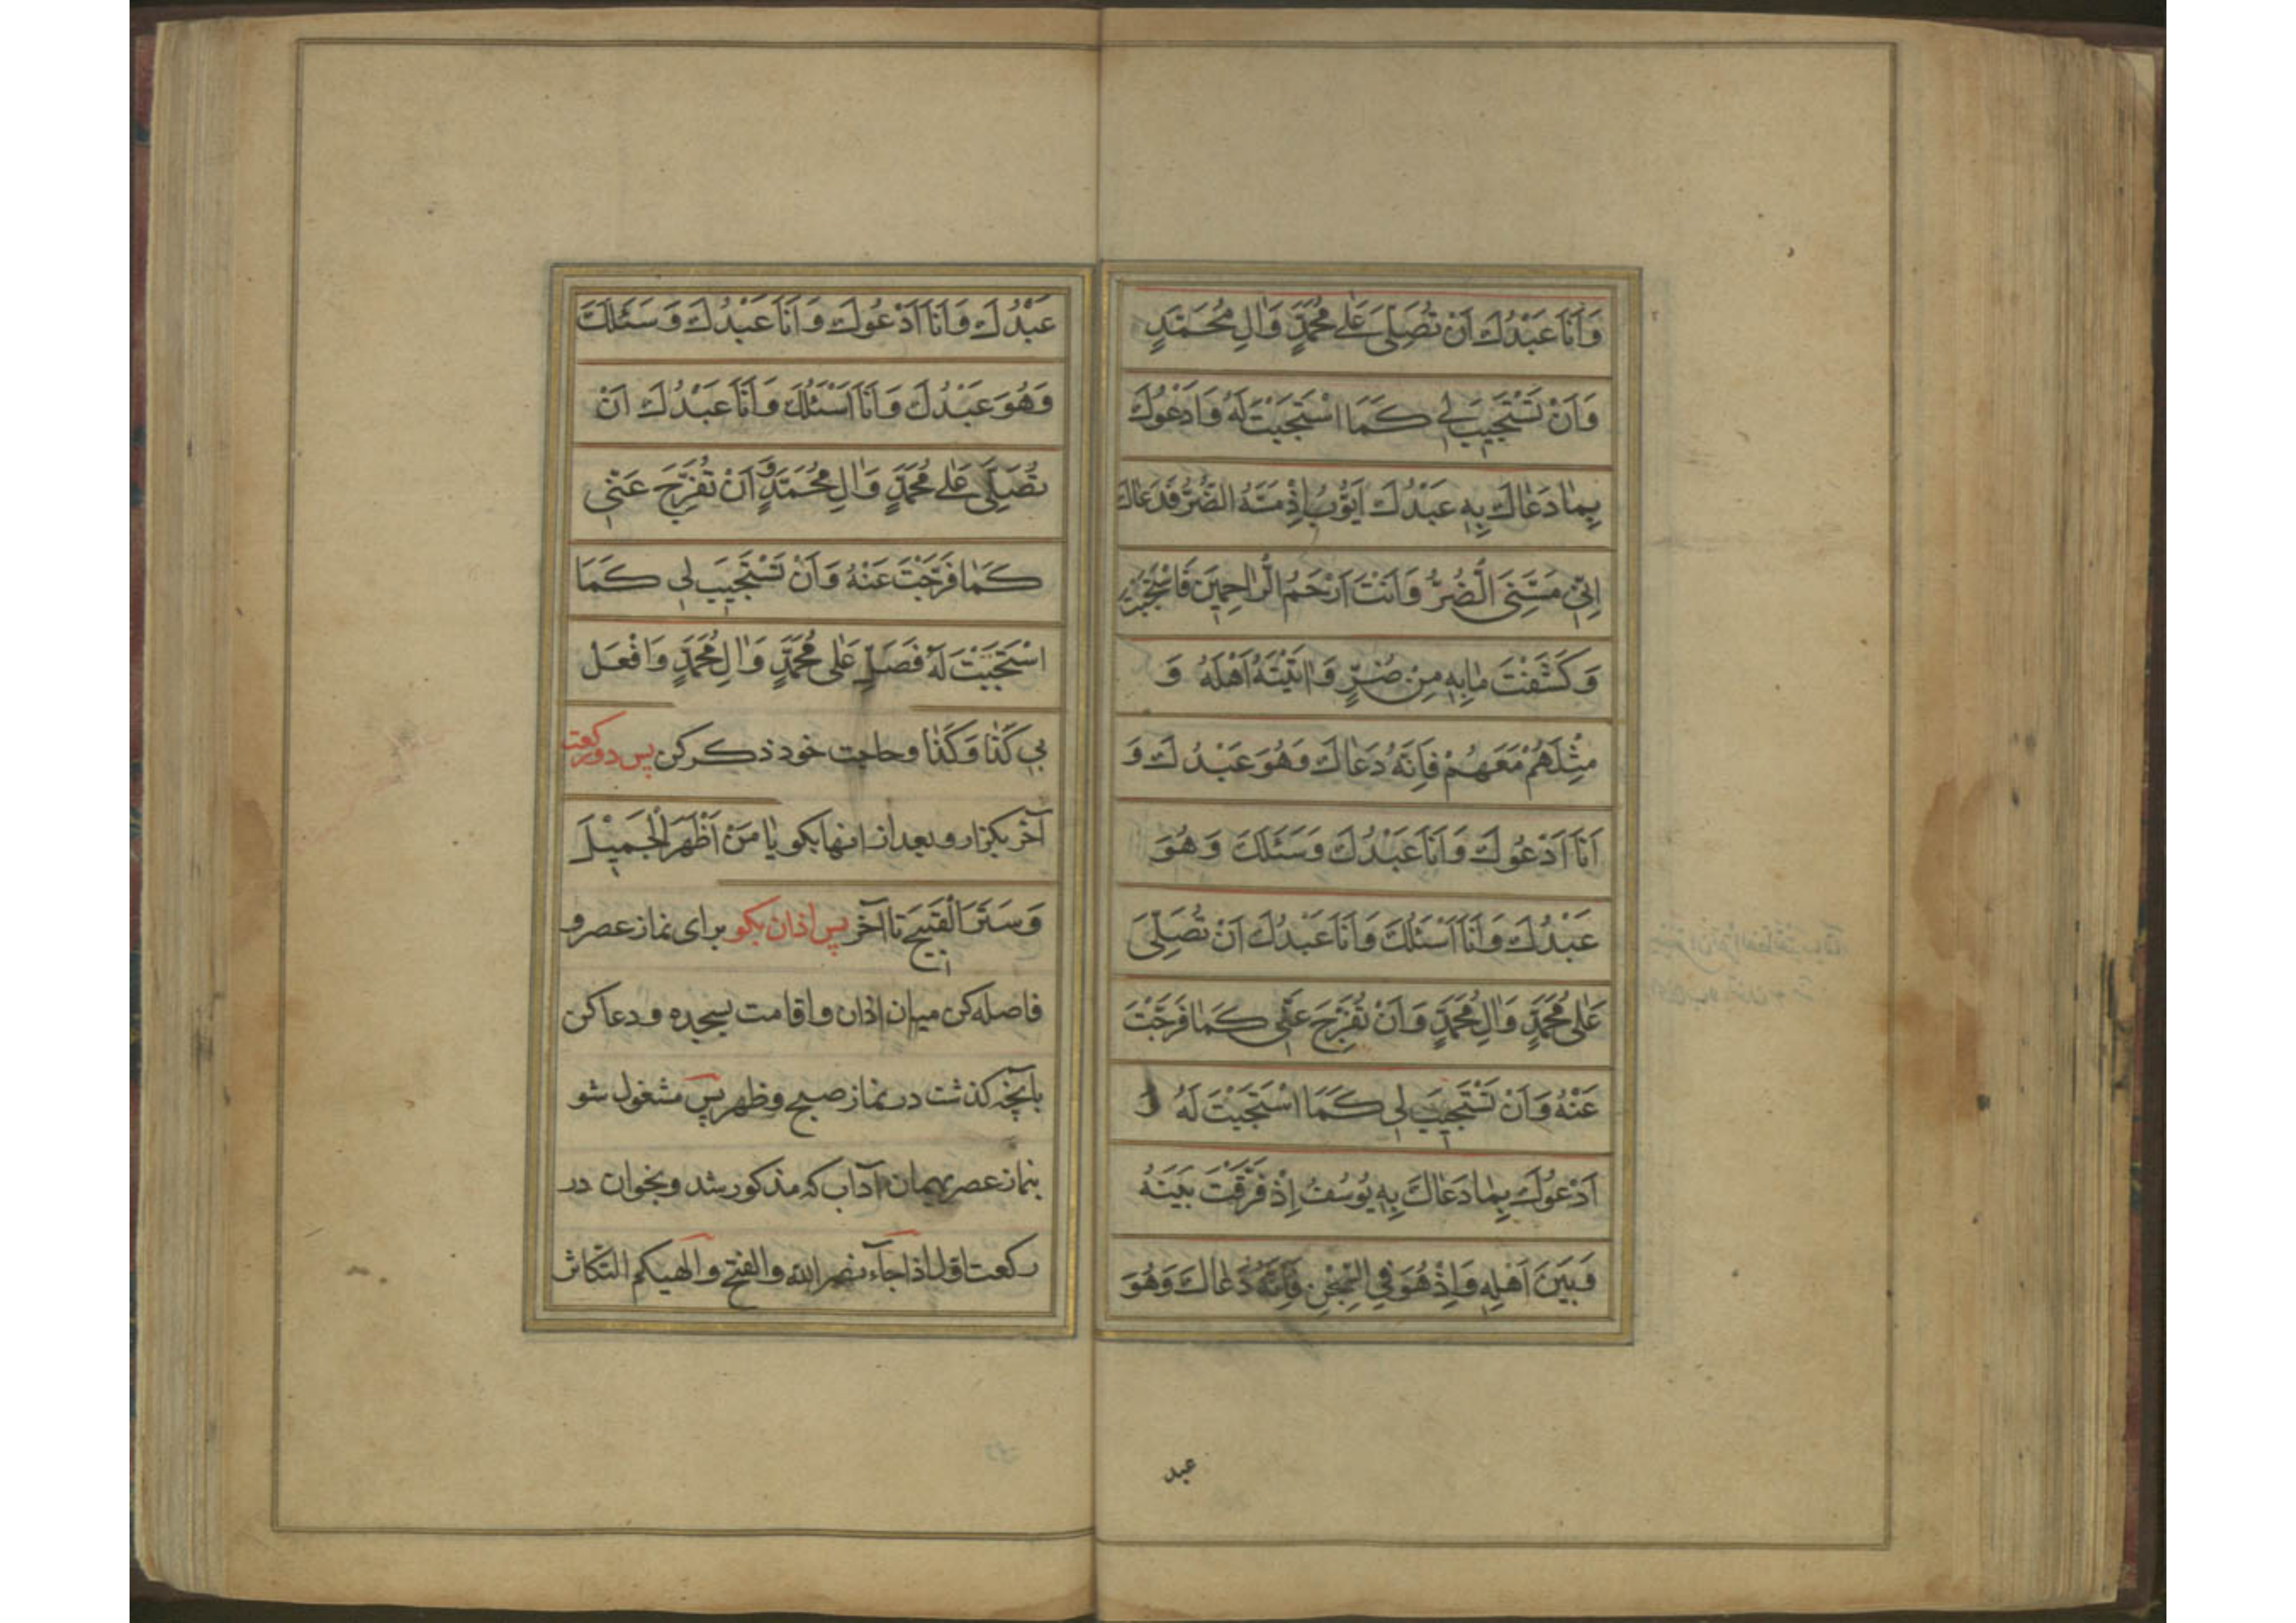 وَاَنَا عَبْدُكَ اَنْ تُصَلِّیَ عَلٰی مُحَمَّدٍ وَاٰلِ مُحَمَّدٍ
وَاَنْ تَسْتَجِیبَ لِی کَمَا اسْتَجَبْتَ لَهُ وَاَدْعُوكَ
بِمٰا دَعٰاكَ بِهِ عَبْدُكَ اَیُّوبُ اِذْ مَسَّهُ الضُّرُّ فَدَعَاكَ
اِنّی مَسَّنِیَ الضُّرُّ وَاَنْتَ اَرْحَمُ الرّٰاحِمِینَ فَاسْتَجَبْتَ
وَکَشَفْتَ مٰابِهِ مِنْ ضُرٍّ وَاٰتَیْتَهُ اَهْلَهُ وَ
مِثْلَهُمْ مَعَهُمْ فَاِنَّهُ دَعٰاكَ وَهُوَ عَبْدُكَ وَ
اَنَا اَدْعُوكَ وَاَنَا عَبْدُكَ وَسَئَلَكَ وَهُوَ
عَبْدُكَ وَاَنَا اَسْئَلُكَ وَاَنَا عَبْدُكَ اَنْ تُصَلِّیَ
عَلٰی مُحَمَّدٍ وَاٰلِ مُحَمَّدٍ وَاَنْ تُفَرِّجَ عَنّی کَمٰا فَرَّجْتَ
عَنْهُ وَاَنْ تَسْتَجِیبَ لِی کَمَا اسْتَجَبْتَ لَهُ وَ
اَدْعُوكَ بِمٰا دَعٰاكَ بِهِ یُوسُفُ اِذْ فَرَّقْتَ بَیْنَهُ
وَبَیْنَ اَهْلِهِ وَاِذْ هُوَ فِی السِّجْنِ فَاِنَّهُ دَعٰاكَ وَهُوَ
عبد
عَبْدُكَ وَاَنَا اَدْعُوكَ وَاَنَا عَبْدُكَ وَسَئَلَكَ
وَهُوَ عَبْدُكَ وَاَنَا اَسْئَلُكَ وَاَنَا عَبْدُكَ اَنْ
تُصَلِّیَ عَلٰی مُحَمَّدٍ وَاٰلِ مُحَمَّدٍ وَاَنْ تُفَرِّجَ عَنّی
کَمٰا فَرَّجْتَ عَنْهُ وَاَنْ تَسْتَجِیبَ لِی کَمَا
اسْتَجَبْتَ لَهُ فَصَلِّ عَلٰی مُحَمَّدٍ وَاٰلِ مُحَمَّدٍ وَافْعَل
بِی کَذٰا وَکَذٰا وحاجت خود ذکر کن پس دو رکعت
آخر بکزار و بعد از انها بکو یٰا مَنْ اَظْهَرَ الْجَمیلَ
وَسَتَرَ الْقَبیحَ تا آخر پس اذان بکو برای نماز عصر و
فاصله کن میان اذان و اقامت بسجده و دعا کن
بآنچه کذشت در نماز صبح و ظهر پس مشغول شو
بنماز عصر بهمان آداب که مذکور شد و بخوان در
رکعت اول اذا جآء نصر الله والفتح و الهیکم التکاثر